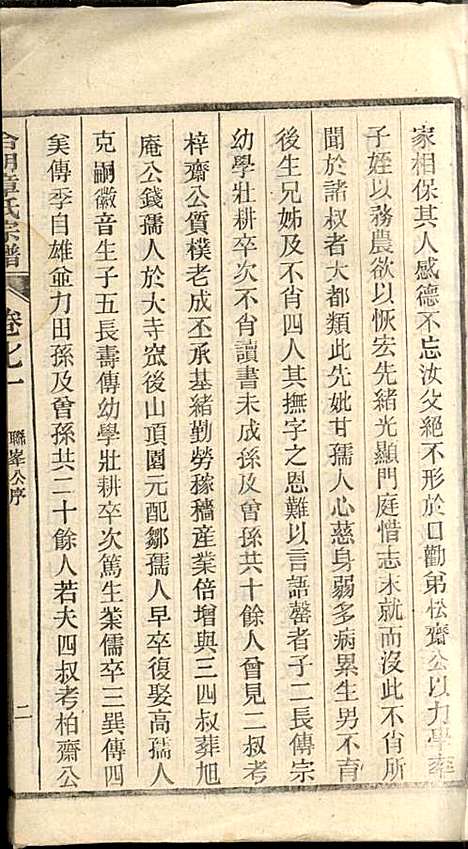 家相保其人感德不忘汝父絕不形於口勸弟松齋公以力學率
子姪以務農欲以恢宏先緒光顯門庭惜志未就而沒此不肖所
聞於諸叔者大都類此先妣甘孺人心慈身弱多病累生男不育
後生兄姊及不肖四人其撫字之恩難以言語罄者子二長傳宗
幼學壯耕卒次不肖讀書未成孫及曾孫共十餘人曾見二叔考
梓齋公質樸老成丕承基緒勤勞稼穡産業倍增與三四叔葬旭
庵公錢孺人於大寺窊後山頂園元配鄒孺人早卒復娶高孺人
克嗣徽音生子五長壽傳幼學壯耕卒次篤生業儒卒三巽傳四
美傳季自雄並力田孫及曾孫共二十餘人若夫四叔考柏齋公
章氏宗譜
卷之一
聯峯公序
二